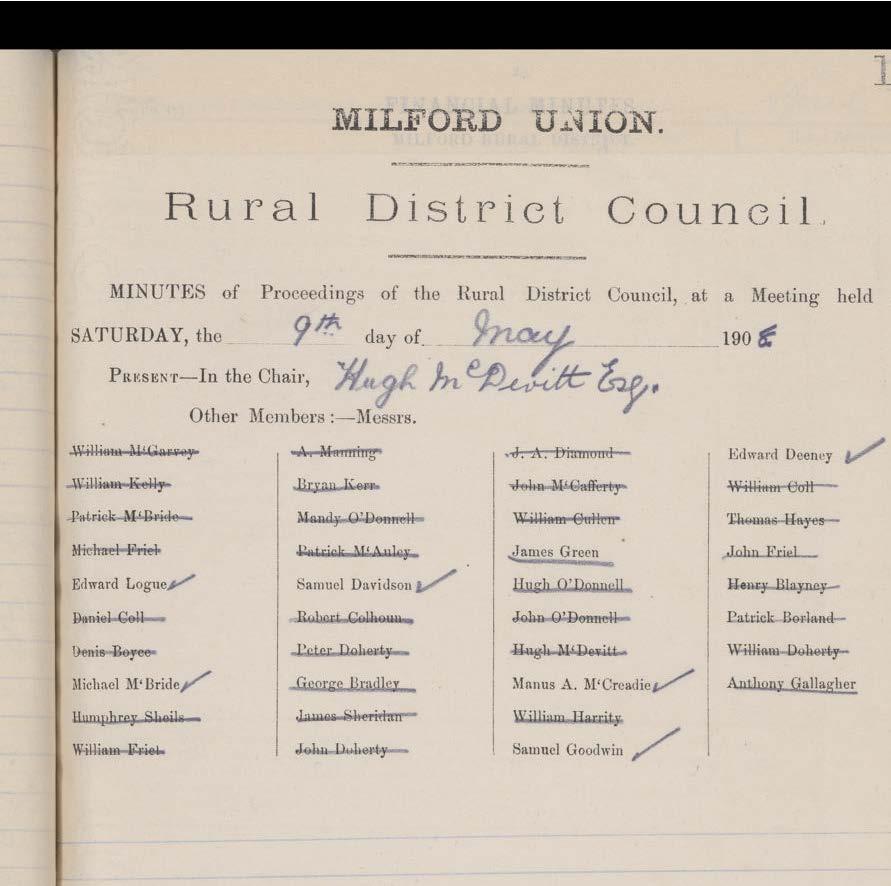 1
MILFORD UNION.
Rural District Council.
MINUTES of Proceedings of the Rural District Council, at a Meeting held
SATURDAY, the 9th day of May 1908
PRESENT—In the Chair, Hugh McDevitt Esq.
Other Members :—Messrs.
William M‘Garvey
William Kelly
Patrick M‘Bride
Michael Friel
Edward Logue
Daniel Coll
Denis Boyce
Michael M‘Bride
Humphrey Sheils
William Friel
A. Manning
Bryan Kerr
Mandy O’Donnell
Patrick M‘Auley
Samuel Davidson
Robert Colhoun
Peter Doherty
George Bradley
James Sheridan
John Doherty
J. A. Diamond
John M‘Cafferty
William Cullen
James Green
Hugh O’Donnell
John O’Donnell
Hugh M‘Devitt
Manus A. M‘Creadie
William Harrity
Samuel Goodwin
Edward Deeney
William Coll
Thomas Hayes
John Friel
Henry Blayney
Patrick Borland
William Doherty
Anthony Gallagher